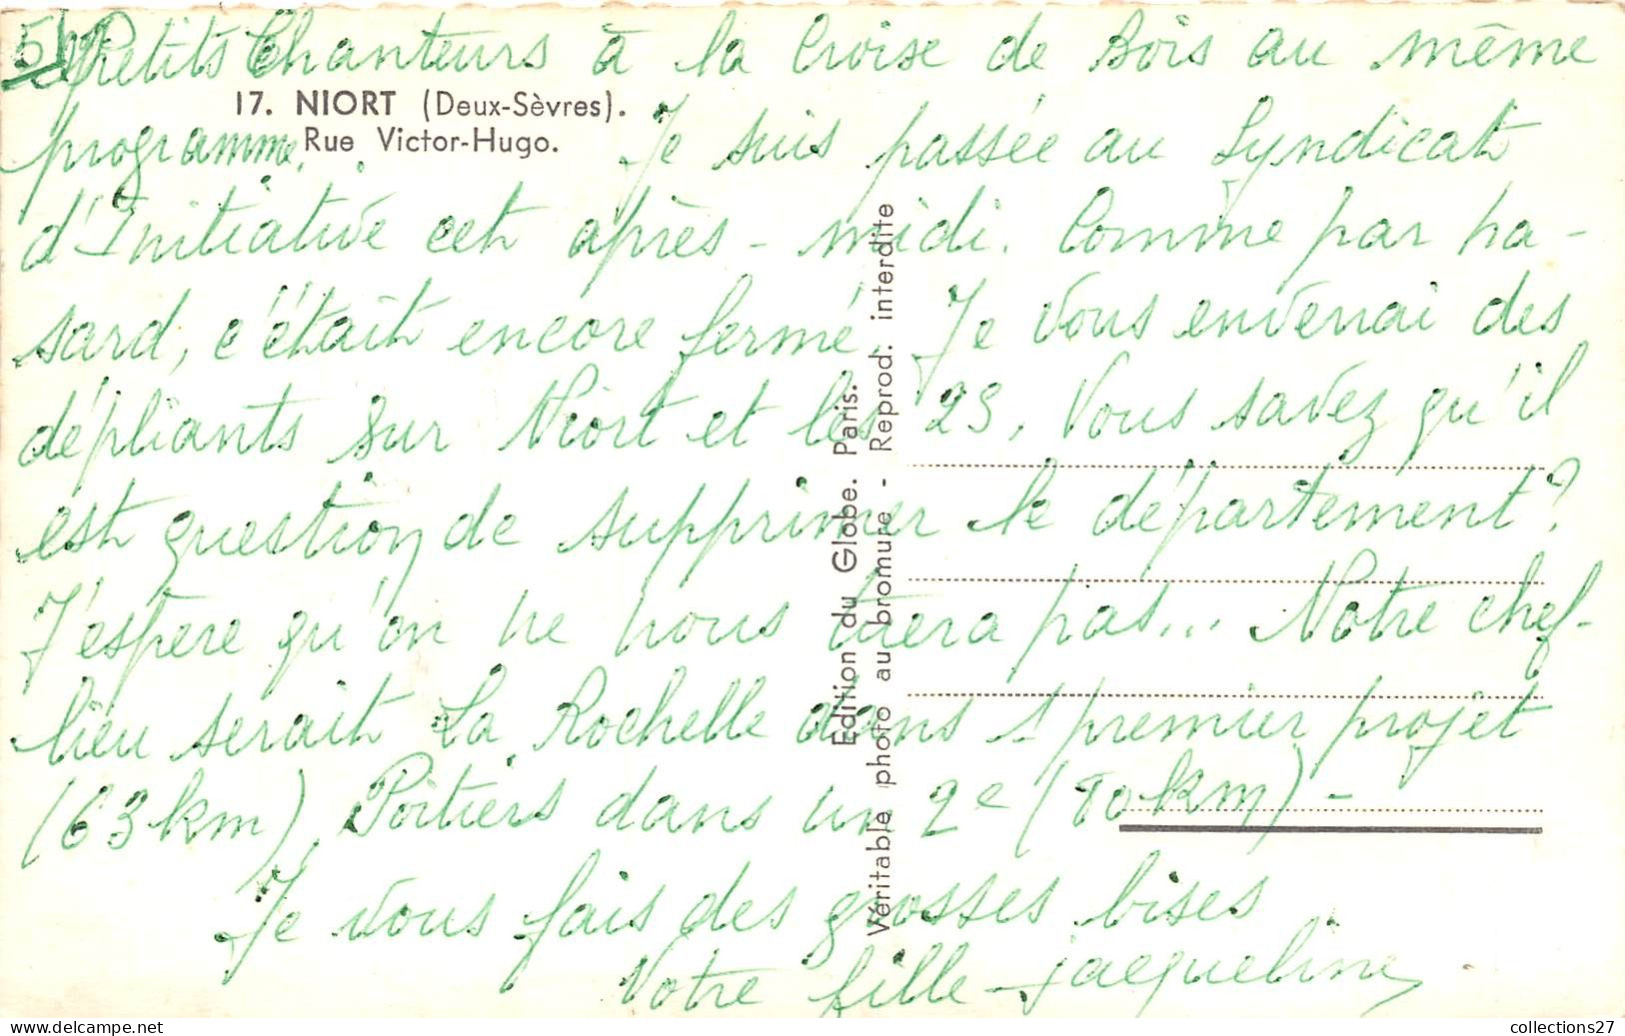 5) Petits Chanteurs à la Croise de Bois au même
17. NIORT (Deux-Sèvres).
Rue Victor-Hugo.
programme. Je suis passée au Syndicat
d'Initiative cet après-midi. Comme par ha-
sard, c'était encore fermé. Je vous enverrai des
dépliants sur Niort et les 2S. Vous savez qu'il
est question de supprimer le département ?
J'espère qu'on ne nous tuera pas... Notre chef-
lieu serait La Rochelle dans 1 premier projet
(63 km), Poitiers dans un 2e (80 km) -
Je vous fais des grosses bises
Votre fille jacqueline
Edition du Globe. Paris.
Véritable photo au bromure - Reprod. interdite
collections27